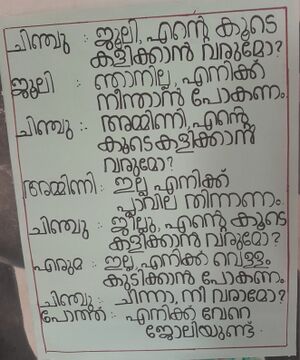 ചിഞ്ചു : ജൂലി, എൻ്റെ കൂടെ
കളിക്കാൻ വരുമോ?
ജൂലി : ഞാനില്ല, എനിക്ക്
നീന്താൻ പോകണം.
ചിഞ്ചു : അമ്മിണി, എൻ്റെ
കൂടെകളിക്കാൻ
വരുമോ?
അമ്മിണി : ഇല്ല എനിക്ക്
പ്ലാവില തിന്നാണം.
ചിഞ്ചു : ജില്ലു, എൻ്റെ കൂടെ
കളിക്കാൻ വരുമോ?
എരുമ : ഇല്ല, എനിക്ക് വെള്ളം
കുടിക്കാൻ പോകണം.
ചിഞ്ചു : ചിന്നാ, നീ വരാമോ?
പോത്ത് : എനിക്ക് വേറെ
ജോലിയുണ്ട്.